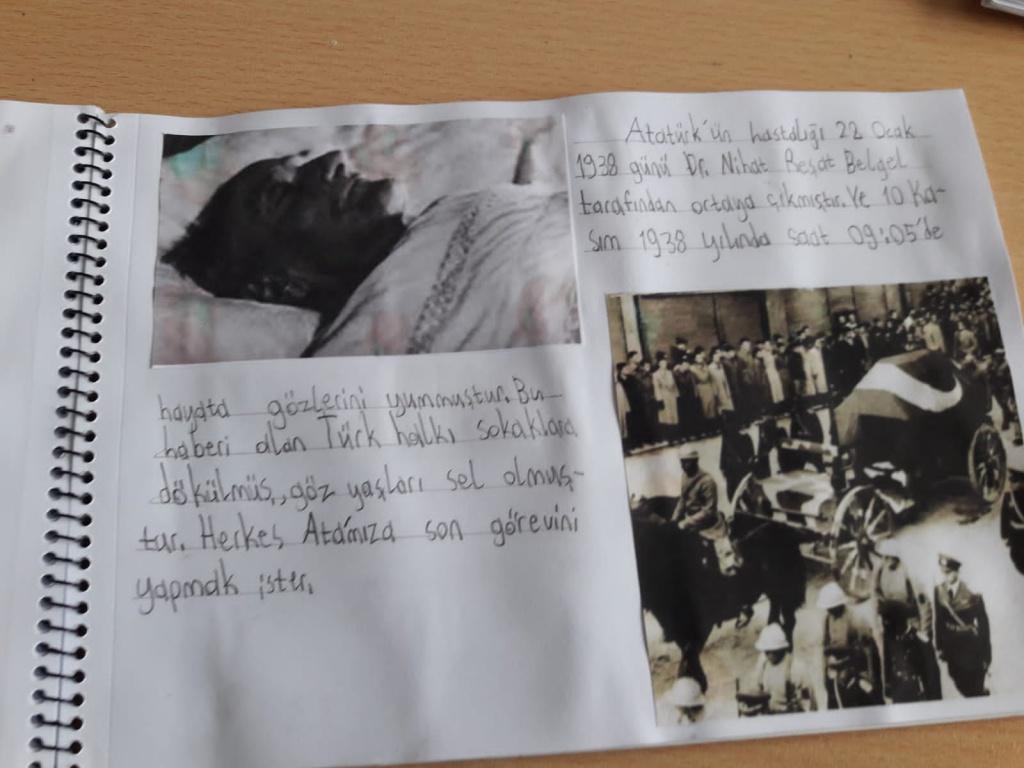 Atatürk'ün hastalığı 22 Ocak
1938 günü Dr. Nihat Reşat Belgel
tarafından ortaya çıkmıştır. Ve 10 Ka-
sım 1938 yılında saat 09:05'de
hayata gözlerini yummuştur. Bu
haberi alan Türk halkı sokaklara
dökülmüş, göz yaşları sel olmuş-
tur. Herkes Atamıza son görevini
yapmak ister.